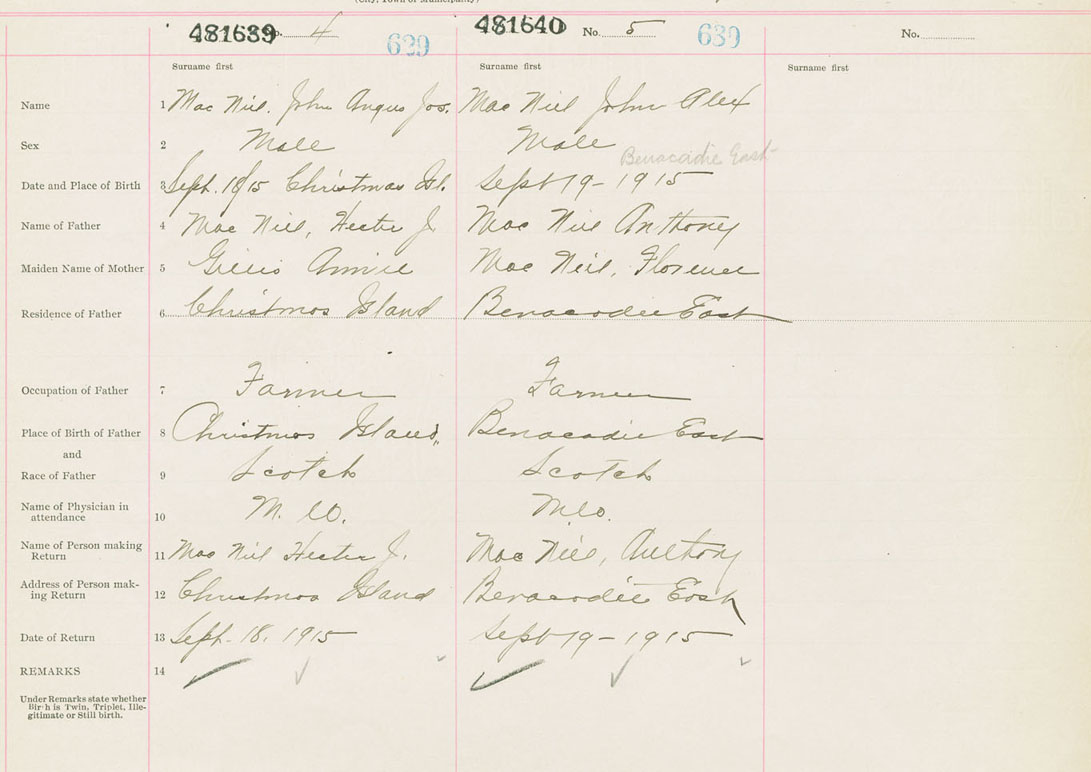 (City, Town or Municipality)
481639 4 629 481640 No. 5 639 No.
Surname first Surname first Surname first
Name 1 Mac Neil. John Angus Jos. Mac Neil John Alex
Sex 2 Male Male
Benacadie East
Date and Place of Birth 3 Sept. 18/15 Christmas Isl. Sept 19-1915
Name of Father 4 Mac Neil, Hector J. Mac Neil Anthony
Maiden Name of Mother 5 Gillis Annie Mac Neil, Florence
Residence of Father 6 Christmas Island Benacadie East
Occupation of Father 7 Farmer Farmer
Place of Birth of Father 8 Christmas Island, Benacadie East
and
Race of Father 9 Scotch Scotch
Name of Physician in
attendance 10
Name of Person making
Return 11 Mac Neil Hector J. Mac Neil, Anthony
Address of Person mak-
ing Return 12 Christmas Island Benacadie East
Date of Return 13 Sept. 18. 1915 Sept 19-1915
REMARKS 14
Under Remarks state whether
Birth is Twin, Triplet, Ille-
gitimate or Still birth.